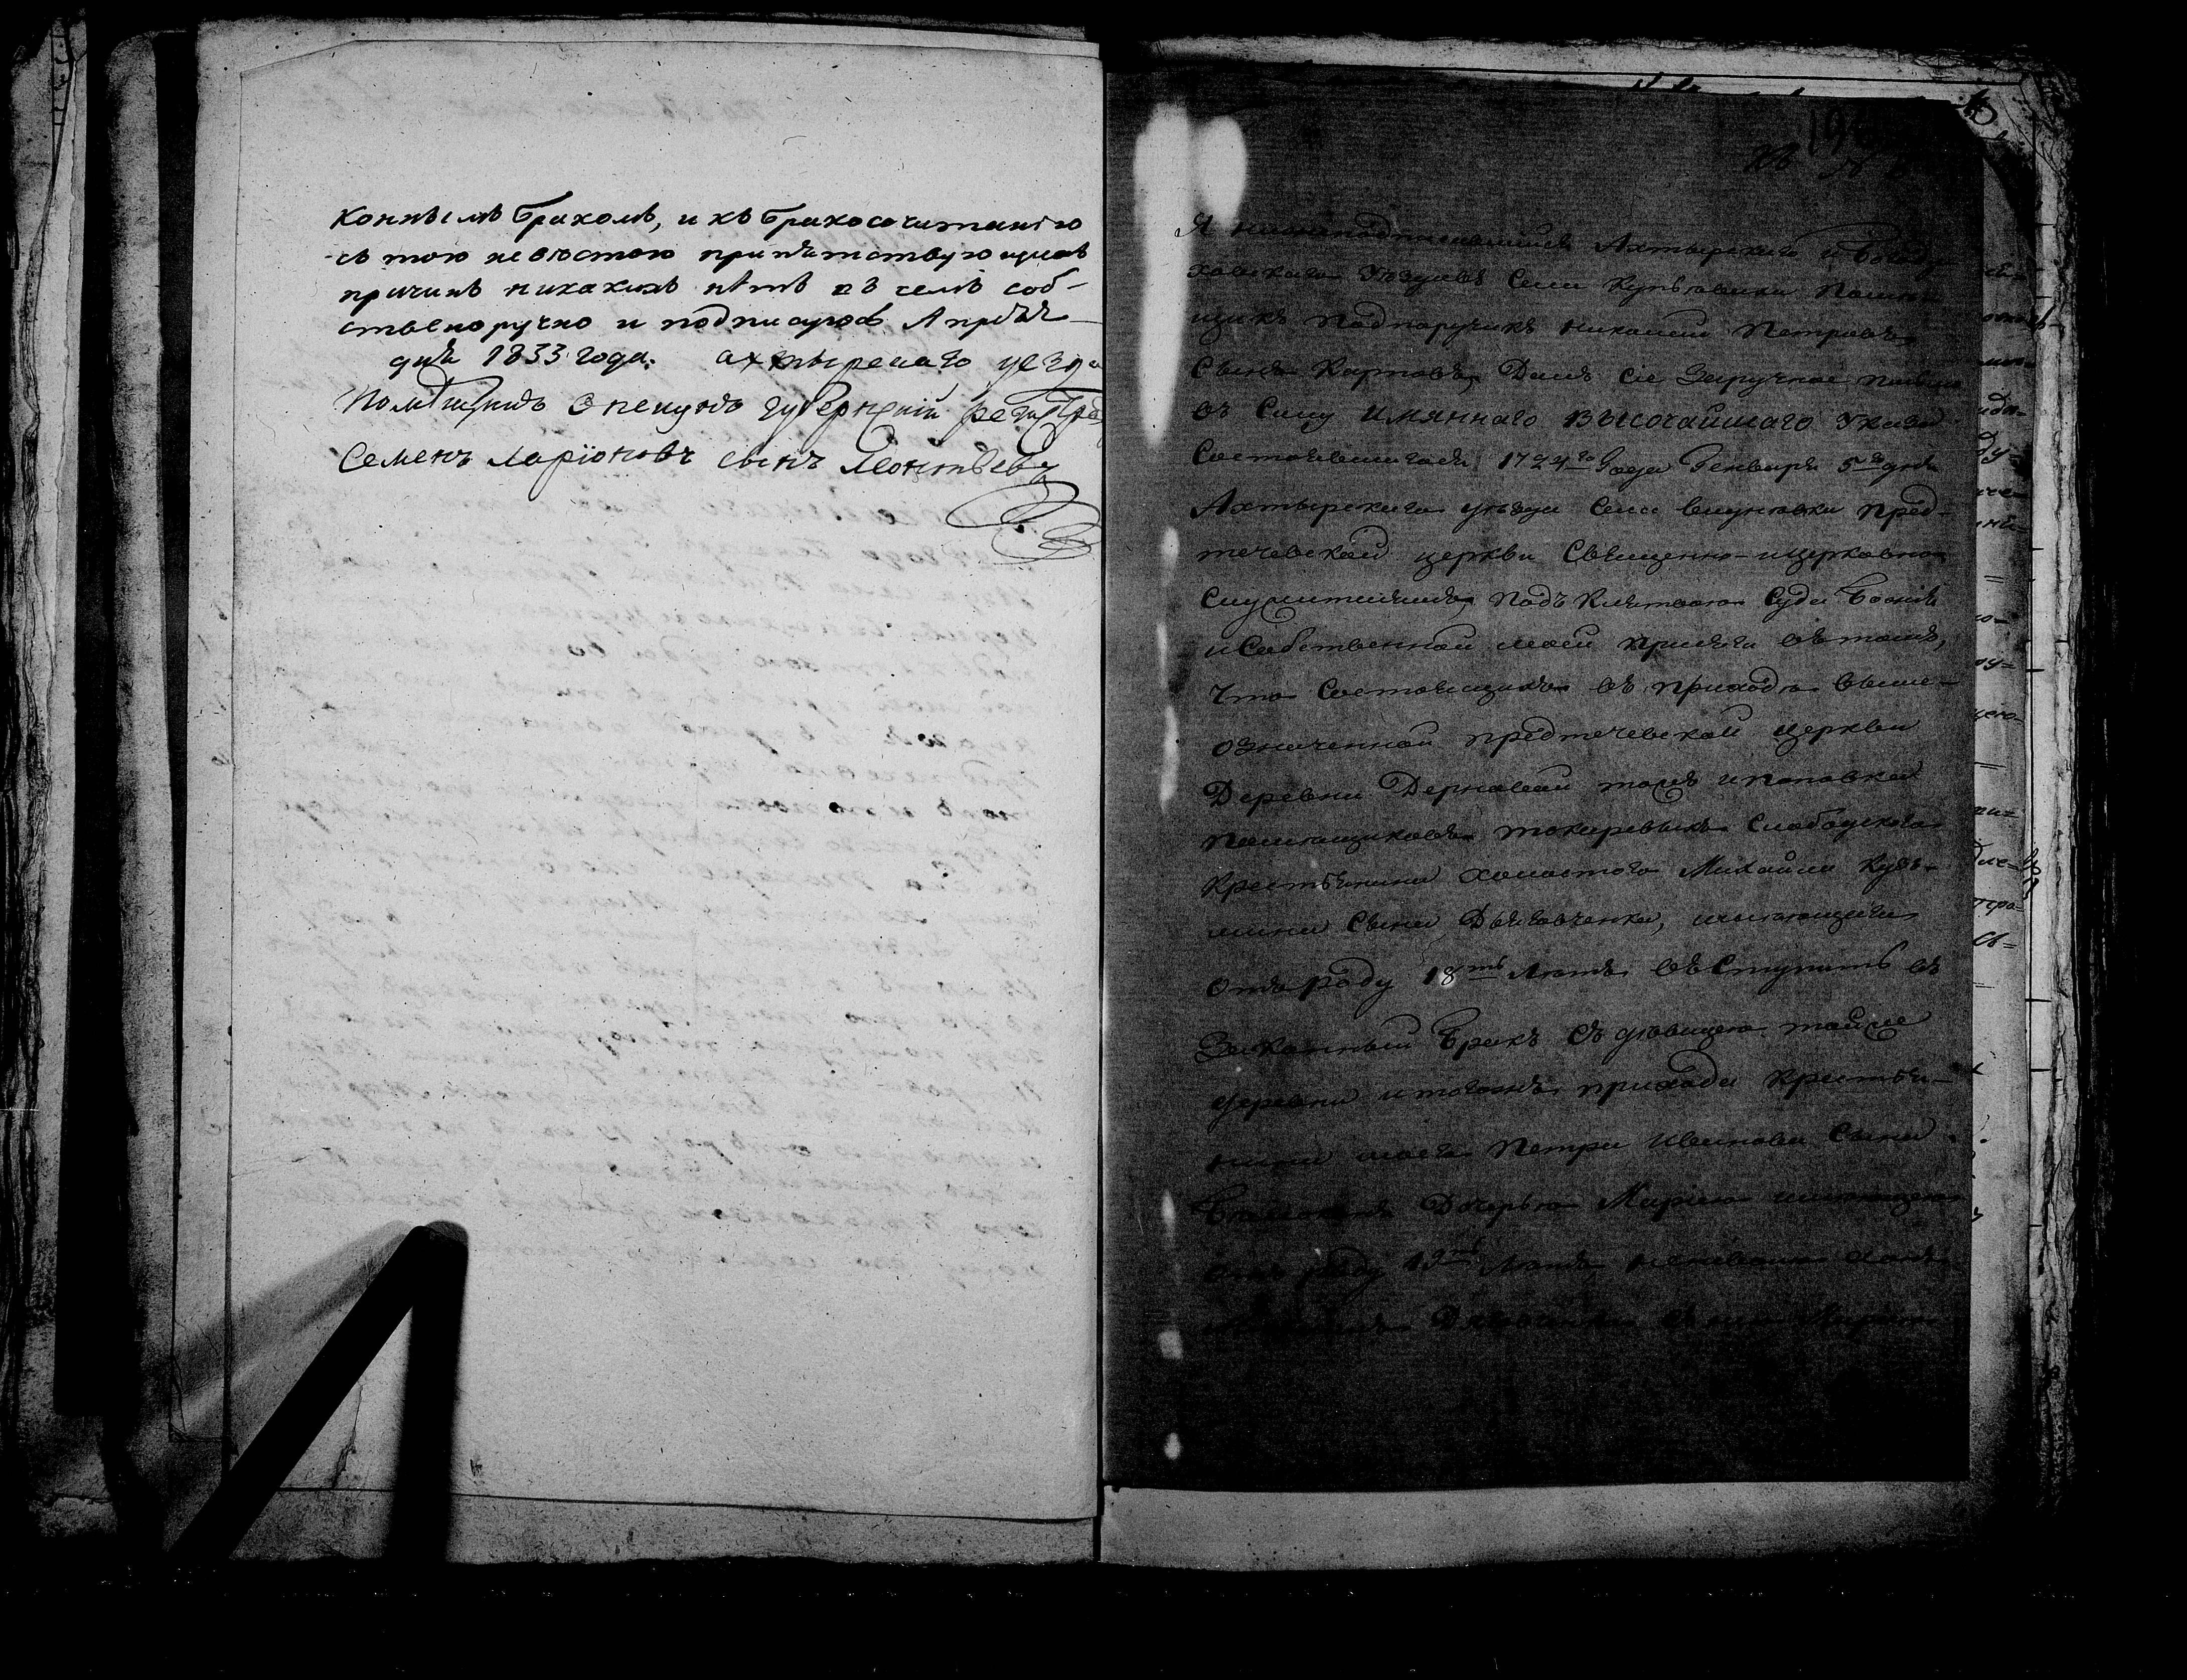 коннымъ бракомъ, и къ бракосочитанію
съ тою невѣстою припятствующихъ
причинъ никакихъ нѣтъ въ чемъ соб-
ственоручно и подписуюсь Апрѣля
дня 1833 года. ахтырскаго уезда
Помѣщикъ Опекунъ губернскій регистра
Семенъ Ларіоновъ сынъ Леонтьевъ
Я нижеподписавшійся Ахтырскаго и Богоду
ховскаго Уѣздовъ Села помѣ
щикъ Подпоручикъ Николай Петровъ
Сынъ Карповъ, Далъ сіе Заручное
въ Силу имяннаго Высочайшаго Указа
Состоявшагося 1724го Года Генваря 5го дня
Ахтырскаго уѣзда Села Пред-
течевской церкви Священно-ицерковно
Служителямъ, подъ Клятвою Суда Божія
и Собственной моей присяги вътомъ,
Что Состоящихъ въ приходѣ выше-
означенной предтечевской церкви
Деревни Дерновой тожъ ипоповка
помѣщиковъ токаревыхъ Слободскаго
Крестьянина холостого Михайла Кузь-
мина Сына имѣющаго
Отъ роду 18ть Лѣтъ въСтупить въ
Законный Бракъ Съ дѣвицею тойже
деревни итогожъ прихода крестья-
нина моего Петра Иванова Сына
Дочерью Маріею имѣющею
отъ роду 19ть Лѣтъ